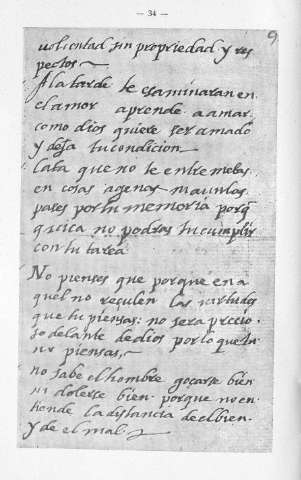 — 34 —
9
voluntad sin propriedad y res
pectos~
A la tarde te esaminaran en
el amor aprende a amar
como dios quiere ser amado
y deja tu condicion
Cata que no te entremetas
en cosas agenas ni aun las
pases por tu memoria porq̃
quiça no podras tu cumplir
con tu tarea
No pienses que porque en a
quel no reluçen las virtudes
que tu piensas: no sera precio.
so delante de dios por lo que tu
no piensas,~
no sabe el hombre goçarse bien
ni dolerse bien. porque no en
tiende la distancia de el bien
y de el mal.~